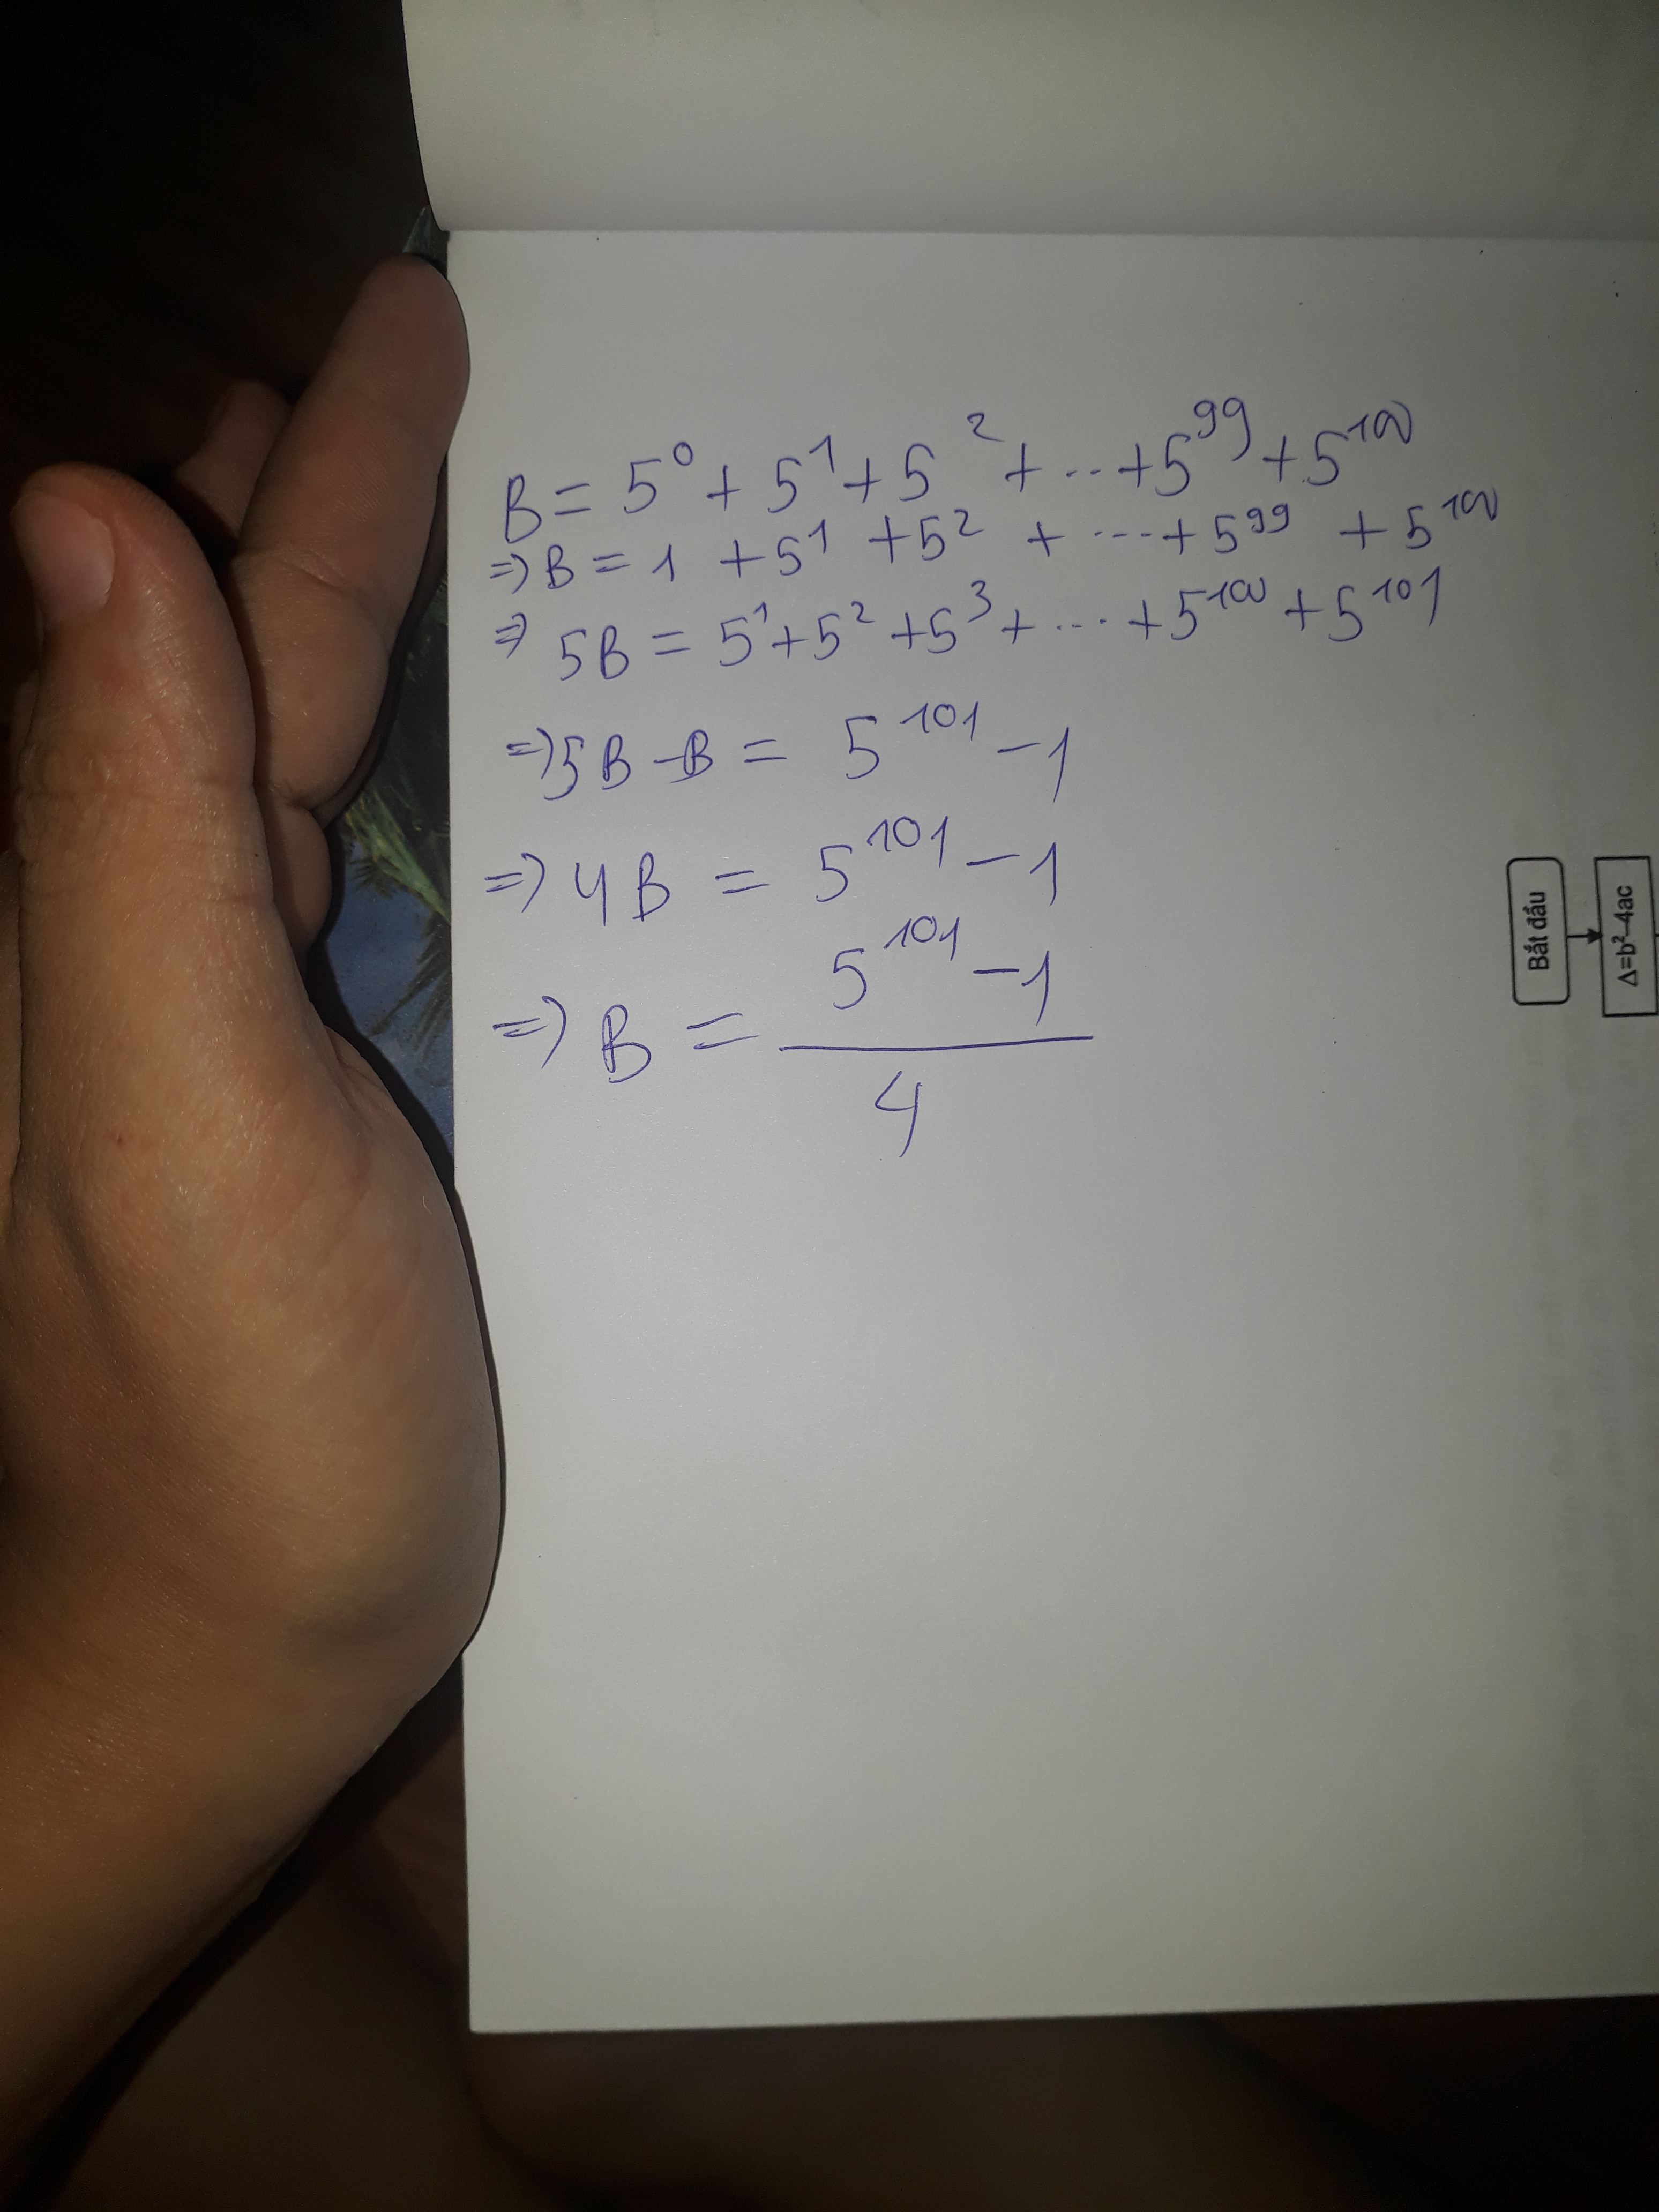 B = 5⁰ + 5¹ + 5² + ... + 5⁹⁹ + 5¹⁰⁰
=> B = 1 + 5¹ + 5² + ... + 5⁹⁹ + 5¹⁰⁰
=> 5B = 5¹ + 5² + 5³ + ... + 5¹⁰⁰ + 5¹⁰¹
=> 5B - B = 5¹⁰¹ - 1
=> 4B = 5¹⁰¹ - 1
=> B = (5¹⁰¹ - 1) / 4
Bắt đầu
Δ=b²-4ac